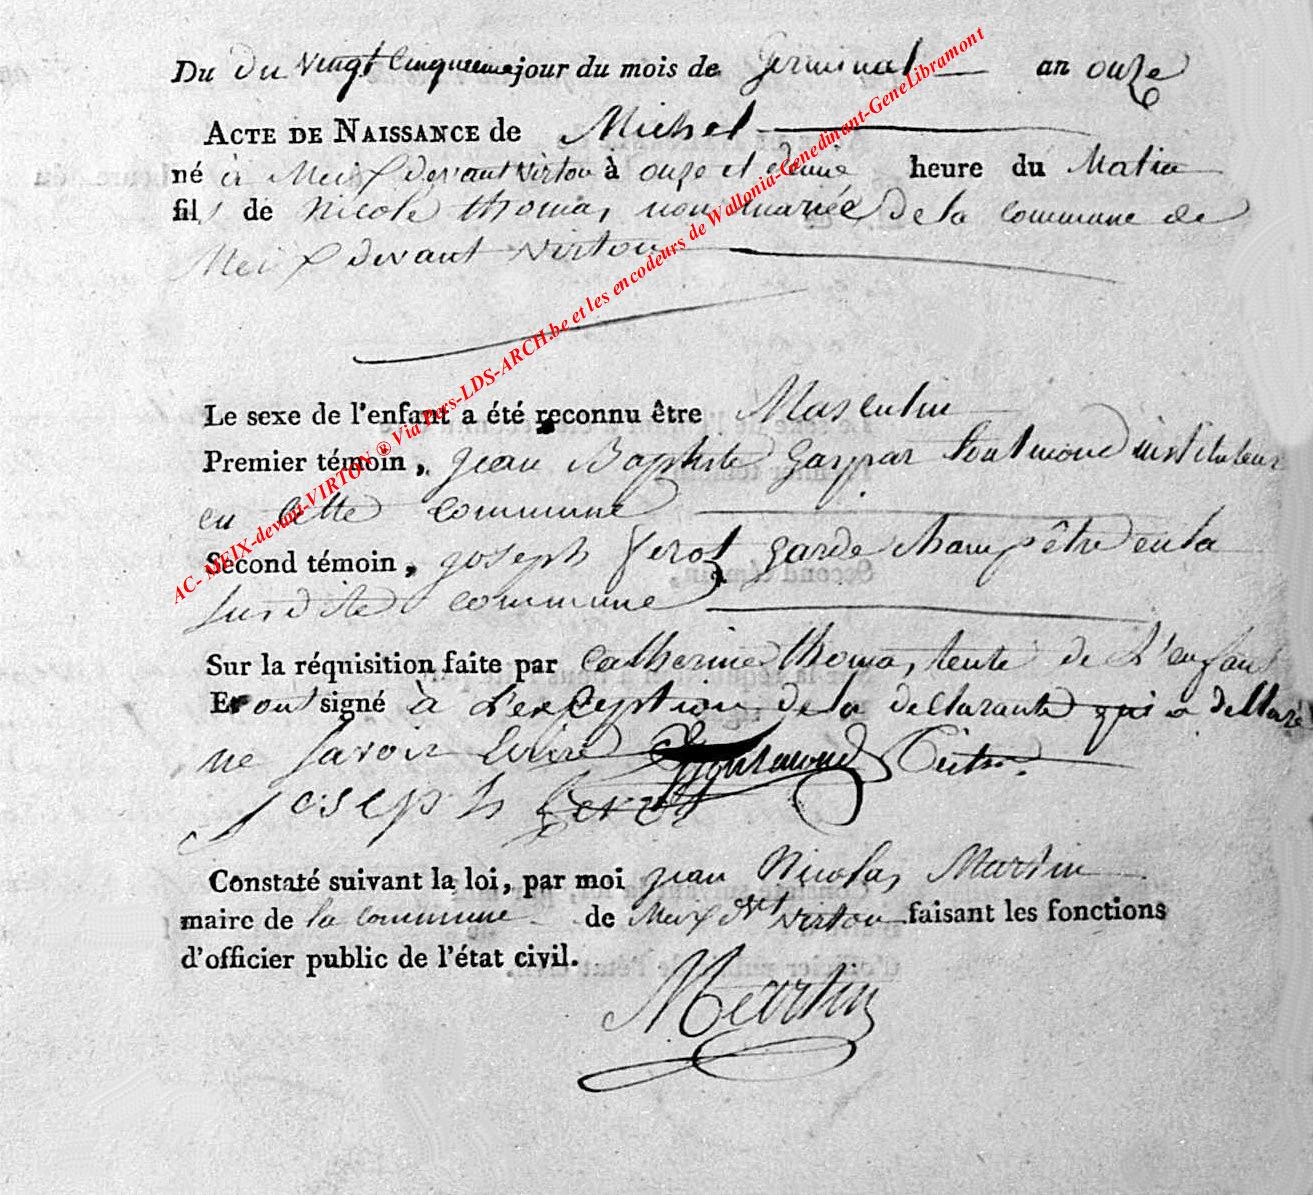 Du du vingt Cinquieme jour du mois de Germinal an onze
ACTE DE NAISSANCE de Michel
né à Meix devant virton à onze et demie heure du Matin
fils de Nicole thomas, non mariée de la commune de
Meix devant virton
Le sexe de l'enfant a été reconnu être Masculin
Premier témoin, jean Baptiste Gaspar toutmond instituteur
en cette commune
Second témoin, joseph garde champêtre en la
susdite commune
Sur la réquisition faite par Catherine thomas, tente de l'enfant
Et ont signé à l'exception de la declarante qui a declaré
ne savoir ecrire
joseph
Constaté suivant la loi, par moi jean Nicolas Martin
maire de la commune de Meix dvt virton faisant les fonctions
d'officier public de l'état civil.
Martin
AC- MEIX-devant-VIRTON ® Via Pers-LDS-ARCH.be et les encodeurs de Wallonia-Genedinant-GeneLibramont